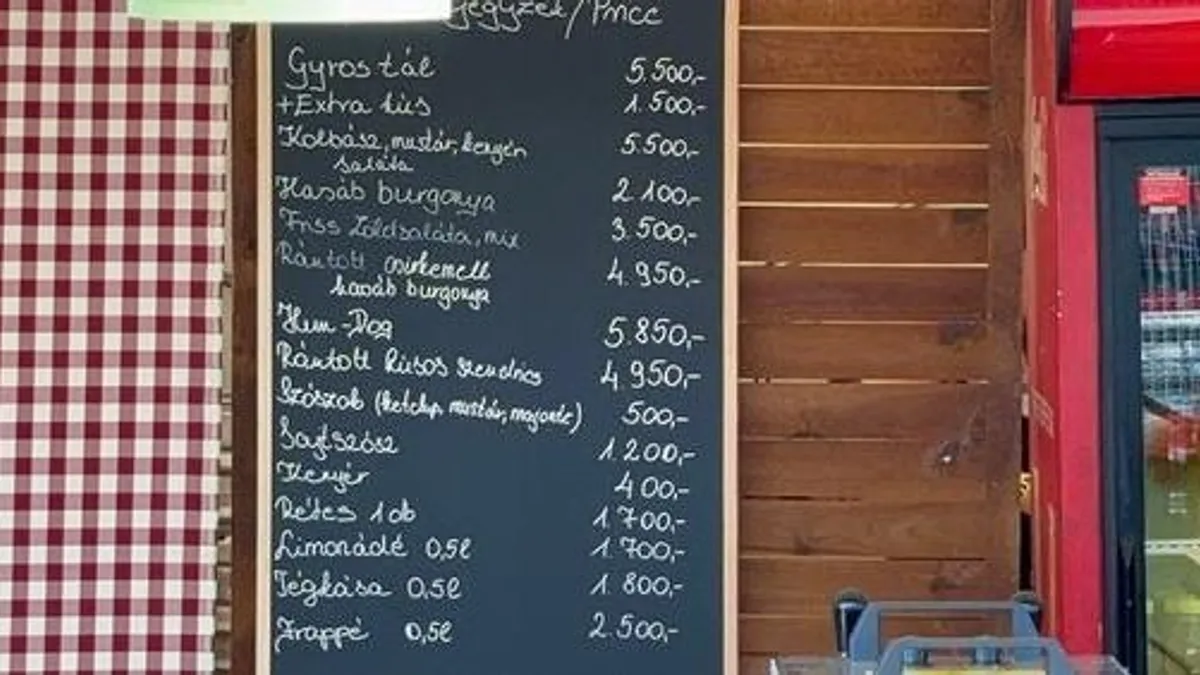 jegyzék/Price
Gyros tál 5.500,-
+Extra hús 1.500,-
Kolbász, mustár, kenyér 5.500,-
saláta
Hasáb burgonya 2.100,-
Friss Zöldsaláta, mix 3.500,-
Rántott csirkemell 4.950,-
hasáb burgonya
Hun-Dog 5.850,-
Rántott húsos szendvics 4.950,-
Szószok (ketchup, mustár, majonéz) 500,-
Sajtszósz 1.200,-
Kenyér 400,-
Rétes 1 db 1.700,-
Limonádé 0,5l 1.700,-
Jégkása 0,5l 1.800,-
Frappé 0,5l 2.500,-